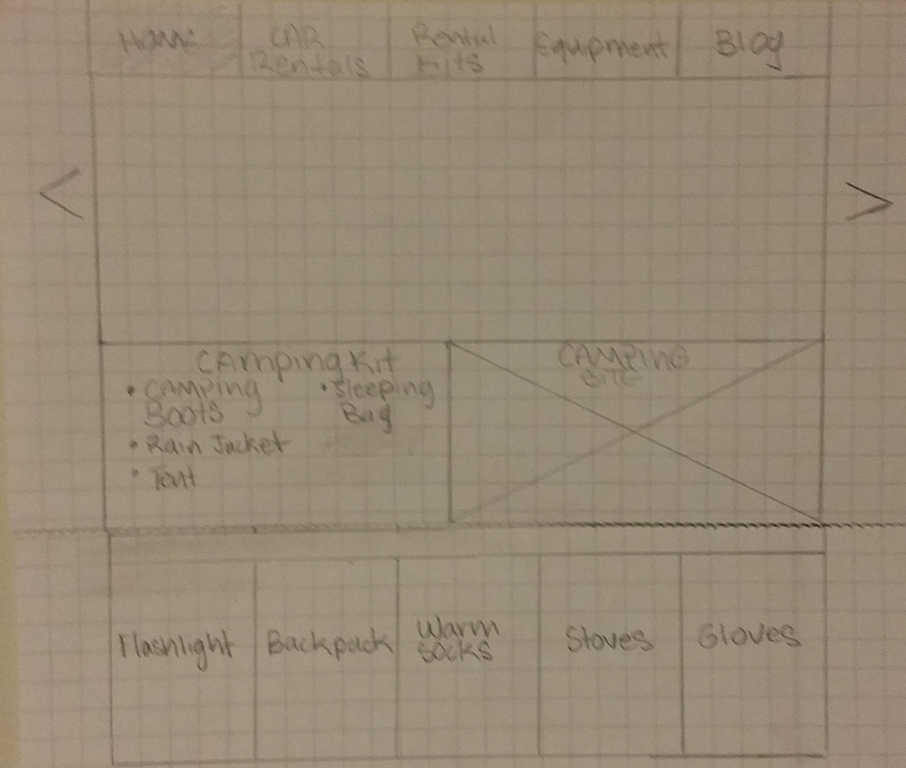 Home
CAR
Rentals
Rental
Kits
Equipment
Blog
<
>
CAmping Kit
• CAMPING
Boots
• Sleeping
Bag
• Rain Jacket
• Tent
CAMPING
SITE
Flashlight
Backpack
Warm
Socks
Stoves
Gloves